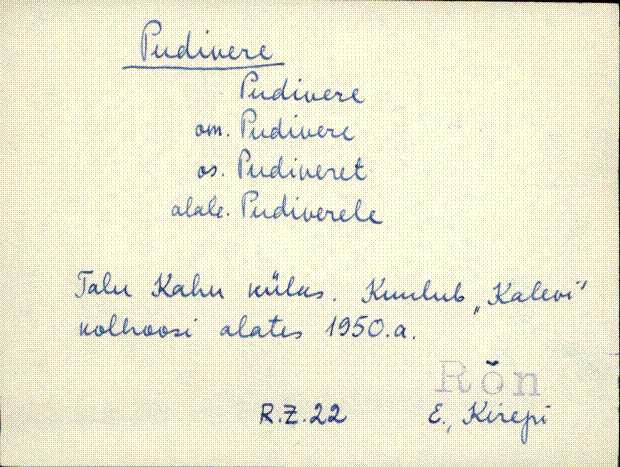 Pudivere
Pudivere
om. Pudivere
os. Pudiveret
alale. Pudiverele
Talu Kahu külas. Kuulub „Kalevi"
kolhoosi alates 1950.a.
Rõn
R.Z.22 E. Kirepi